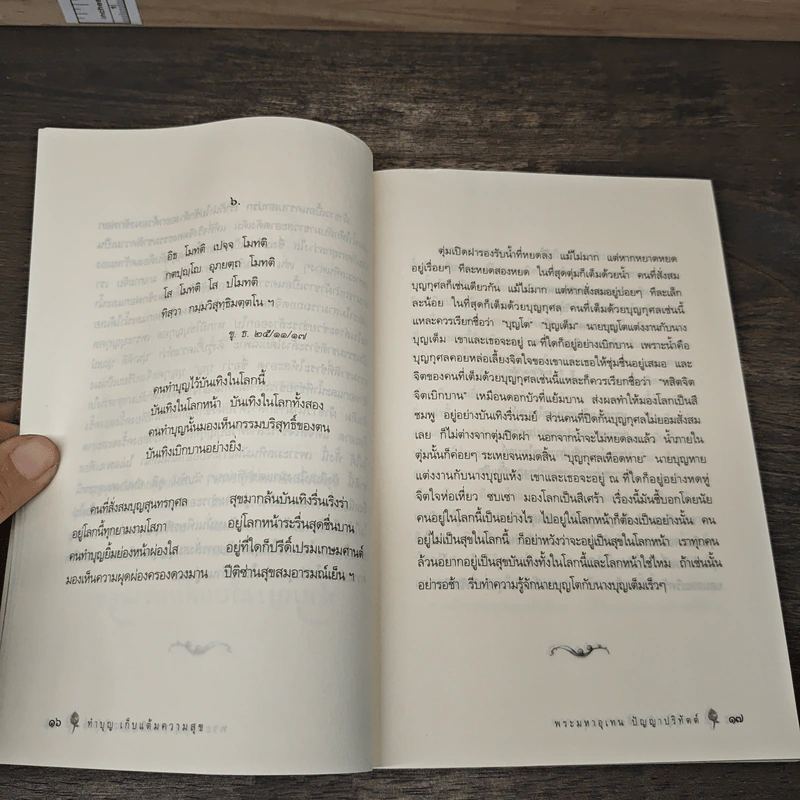 ๖.
อิธ โมทติ เปจฺจ โมทติ
กตปุญฺโญ อุภยตฺถ โมทติ
โส โมทติ โส ปโมทติ
ทิสฺวา กมฺมวิสุทฺธิมตฺตโน ฯ
ขุ. ธ. ๒๕/๑๑/๑๗
คนทำบุญไว้บันเทิงในโลกนี้
บันเทิงในโลกหน้า บันเทิงในโลกทั้งสอง
คนทำบุญนั้นมองเห็นกรรมบริสุทธิ์ของตน
บันเทิงเบิกบานอย่างยิ่ง.
คนที่สั่งสมบุญสุนทรกุศล สุขมากล้นบันเทิงรื่นเริงร่า
อยู่โลกนี้ทุกยามงามโสภา อยู่โลกหน้าระรื่นสุดชื่นบาน
คนทำบุญยิ้มย่องหน้าผ่องใส อยู่ที่ใดก็ปรีดิ์เปรมเกษมศานต์
มองเห็นความผุดผ่องครองดวงมาน ปีติซ่านสุขสมอารมณ์เย็น ฯ
๑๖ ทำบุญ เก็บแต้มความสุข
ตุ่มเปิดฝารองรับน้ำที่หยดลง แม้ไม่มาก แต่หากหยาดหยด
อยู่เรื่อยๆ ทีละหยดสองหยด ในที่สุดตุ่มก็เต็มด้วยน้ำ คนที่สั่งสม
บุญกุศลก็เช่นเดียวกัน แม้ไม่มาก แต่หากสั่งสมอยู่บ่อยๆ ทีละเล็ก
ละน้อย ในที่สุดก็เต็มด้วยบุญกุศล คนที่เต็มด้วยบุญกุศลเช่นนี้
แหละควรเรียกชื่อว่า "บุญโต" "บุญเต็ม" นายบุญโตแต่งงานกับนาง
บุญเต็ม เขาและเธอจะอยู่ ณ ที่ใดก็อยู่อย่างเบิกบาน เพราะน้ำคือ
บุญกุศลคอยหล่อเลี้ยงจิตใจของเขาและเธอให้ชุ่มชื่นอยู่เสมอ และ
จิตของคนที่เต็มด้วยบุญกุศลเช่นนี้แหละก็ควรเรียกชื่อว่า "หสิตจิต
จิตเบิกบาน" เหมือนดอกบัวที่แย้มบาน ส่งผลทำให้มองโลกเป็นสี
ชมพู อยู่อย่างบันเทิงรื่นรมย์ ส่วนคนที่ปิดกั้นบุญกุศลไม่ยอมสั่งสม
เลย ก็ไม่ต่างจากตุ่มปิดฝา นอกจากน้ำจะไม่หยดลงแล้ว น้ำภายใน
ตุ่มนั้นก็ค่อยๆ ระเหยจนหมดสิ้น "บุญกุศลเหือดหาย" นายบุญหาย
แต่งงานกับนางบุญแห้ง เขาและเธอจะอยู่ ณ ที่ใดก็อยู่อย่างหดหู่
จิตใจห่อเหี่ยว ซบเซา มองโลกเป็นสีเศร้า เรื่องนี้มันชี้บอกโดยนัย
คนอยู่ในโลกนี้เป็นอย่างไร ไปอยู่ในโลกหน้าก็ต้องเป็นอย่างนั้น คน
อยู่ไม่เป็นสุขในโลกนี้ ก็อย่าหวังว่าจะอยู่เป็นสุขในโลกหน้า เราทุกคน
ล้วนอยากอยู่เป็นสุขบันเทิงทั้งในโลกนี้และโลกหน้าใช่ไหม ถ้าเช่นนั้น
อย่ารอช้า รีบทำความรู้จักนายบุญโตกับนางบุญเต็มเร็วๆ
พระมหาอุเทน ปัญญาปริทัตต์ ๑๗